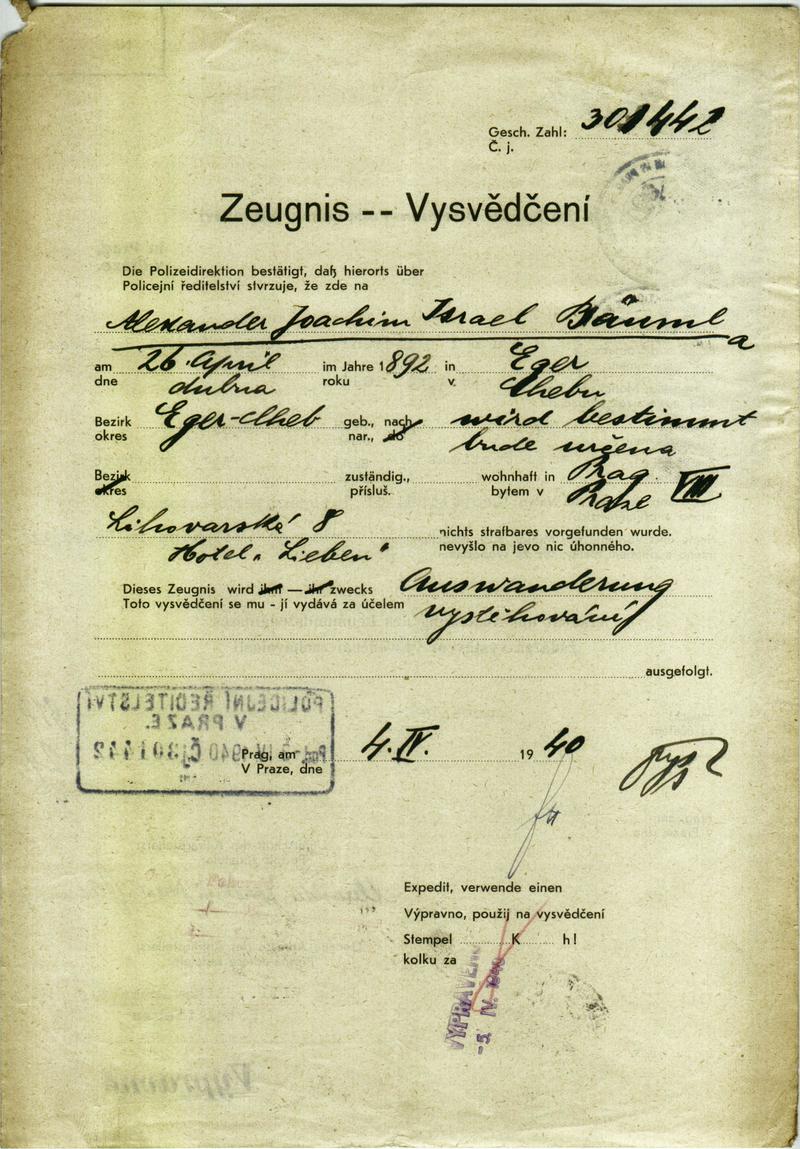 Gesch. Zahl: 301442
Č. j.
Zeugnis -- Vysvědčení
Die Polizeidirektion bestätigt, daß hierorts über
Policejní ředitelství stvrzuje, že zde na
Alexander Joachim Israel Bäuml
a
am 26. April im Jahre 1892 in Eger
dne dubna roku v. Chebu
Bezirk Eger-Cheb geb., nach wird bestimmt
okres nar., do bude určena
Bezirk zuständig., wohnhaft in Prag VIII
okres přísluš. bytem v Praze
Lihovarská 8 nichts strafbares vorgefunden wurde.
Hotel „Lieben" nevyšlo na jevo nic úhonného.
Dieses Zeugnis wird ihm — ihr zwecks Auswanderung
Toto vysvědčení se mu - jí vydává za účelem vystěhování
ausgefolgt.
POLICEJNÍ ŘEDITELSTVÍ
V PRAZE.
1940 Čj 301442
Prag, am 4. IV. 1940
V Praze, dne
Expedit, verwende einen
Výpravno, použij na vysvědčení
Stempel K h!
kolku za
VYPRAVENO
-5. IV. 1940
Výpravna